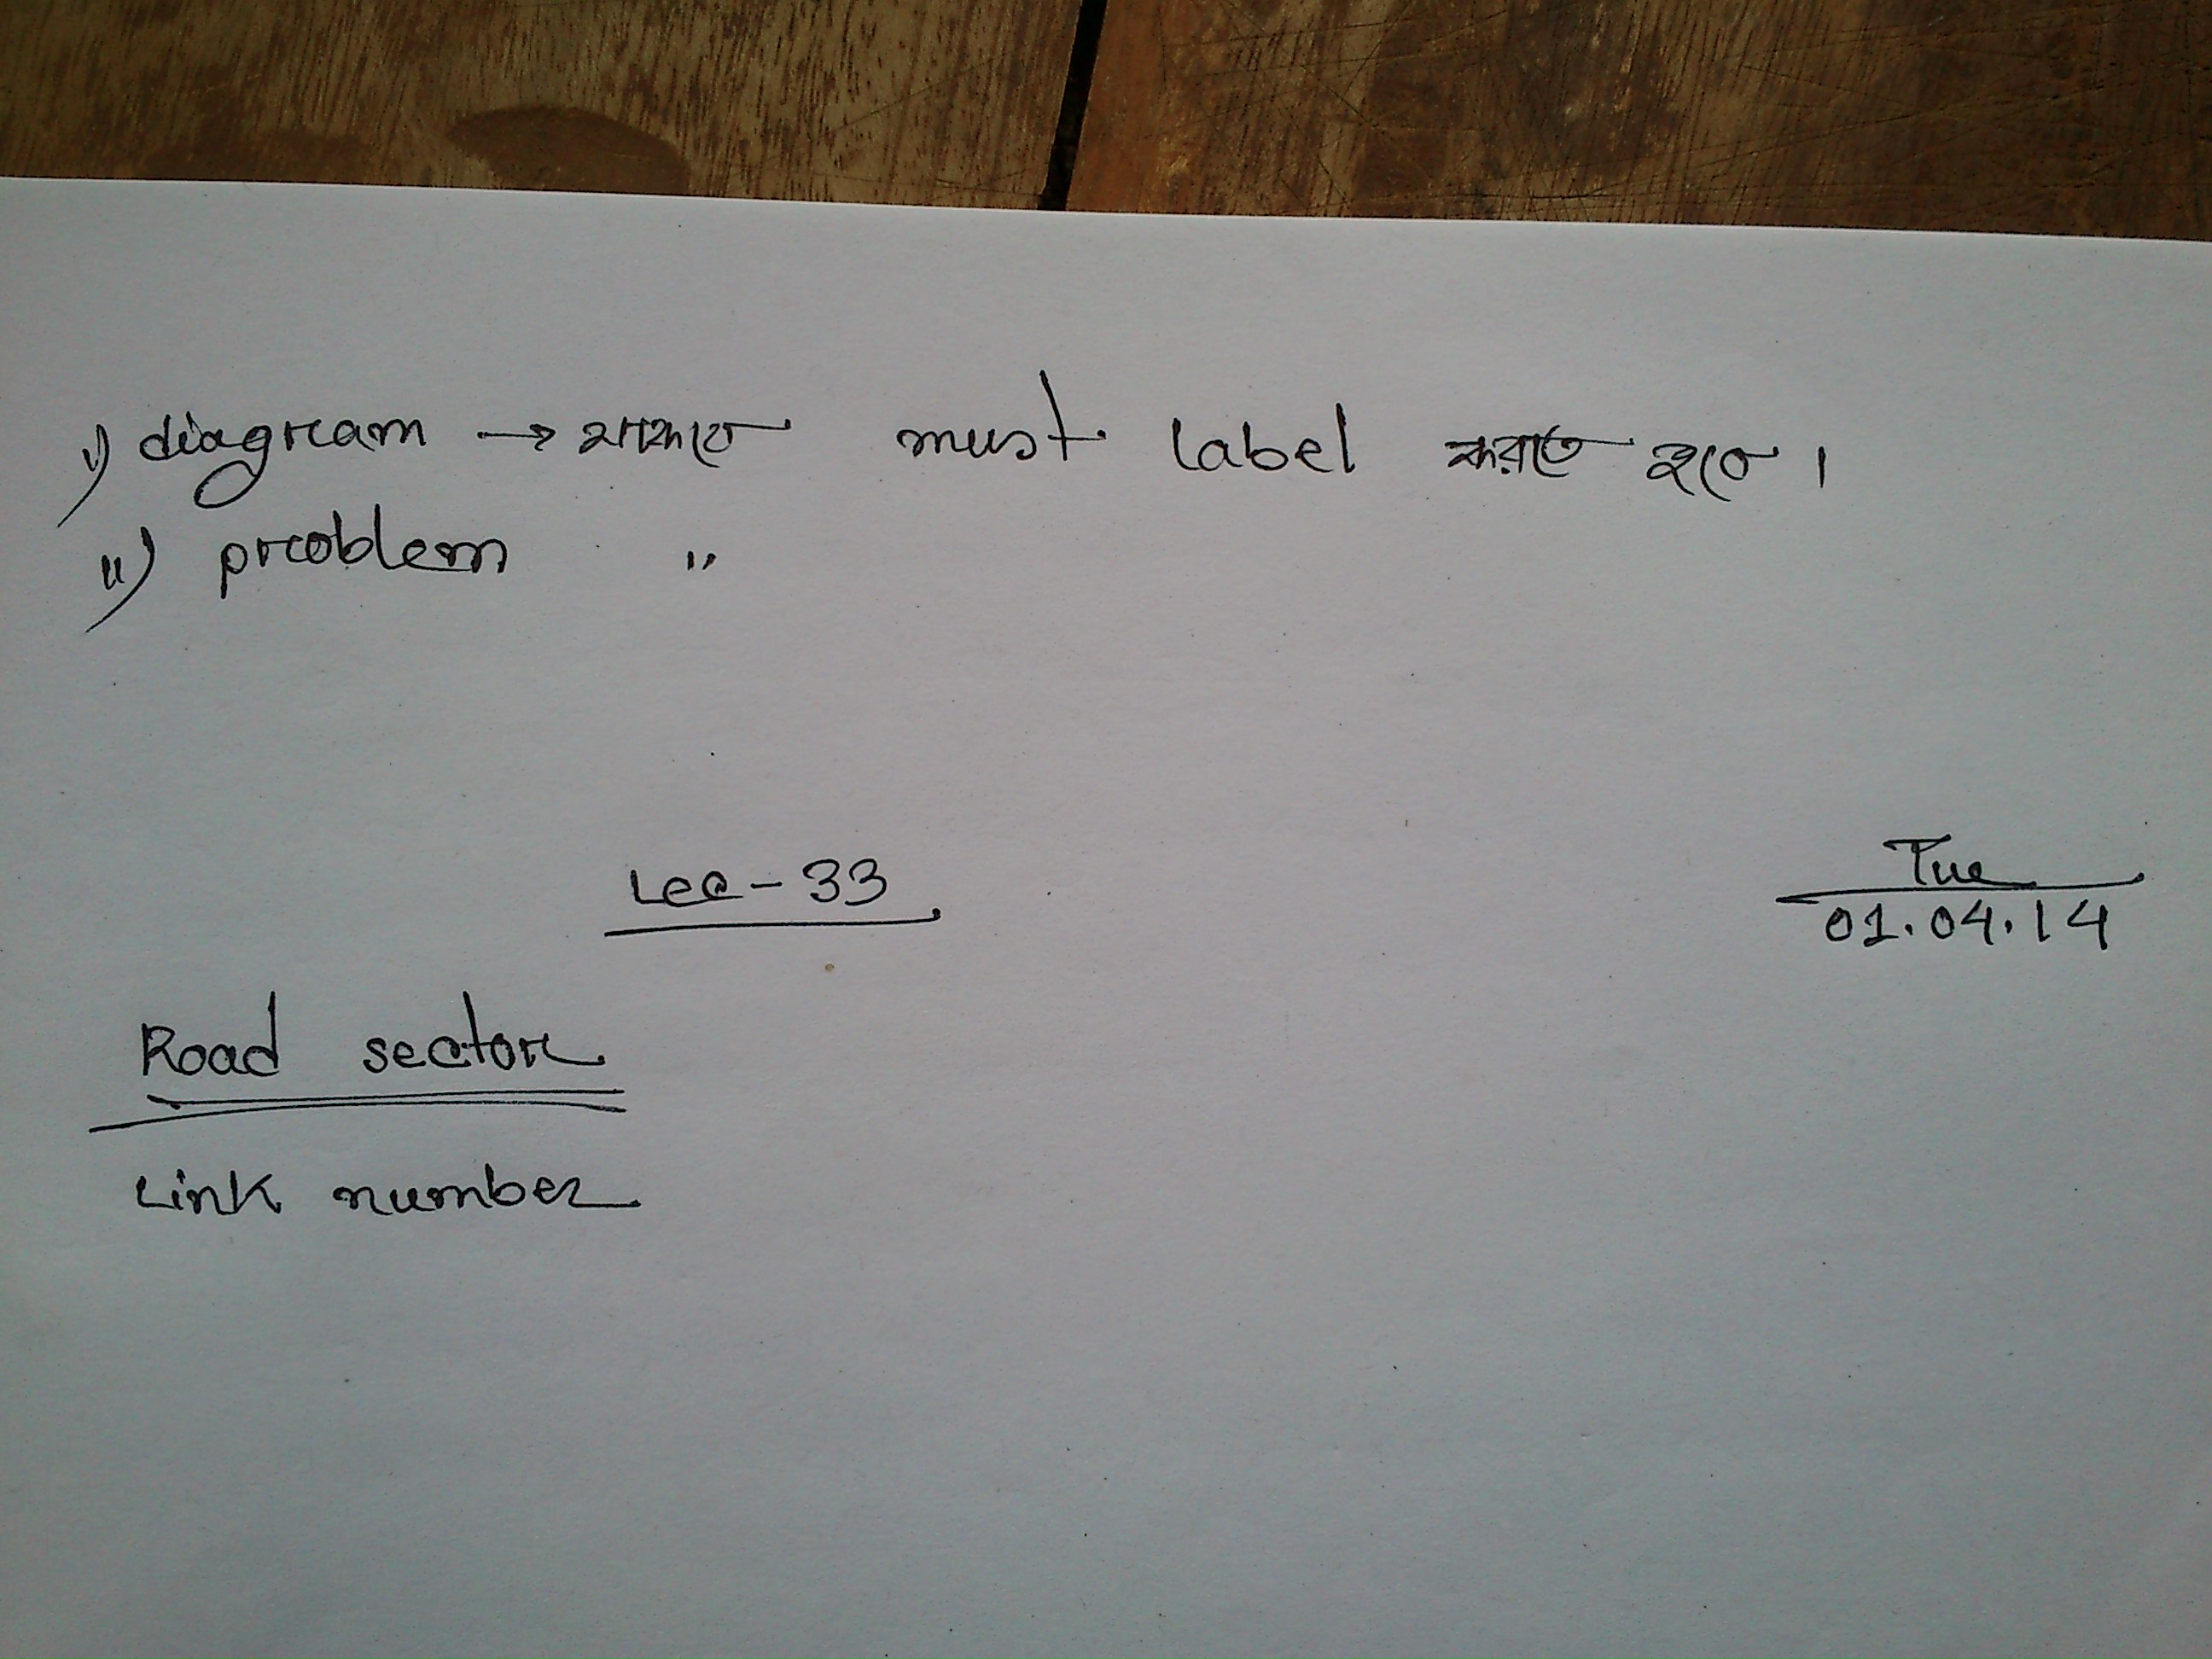 i) diagram → থাকলে must label করতে হবে।
ii) problem "
Lec - 33
Tue
01.04.14
Road sector
Link number